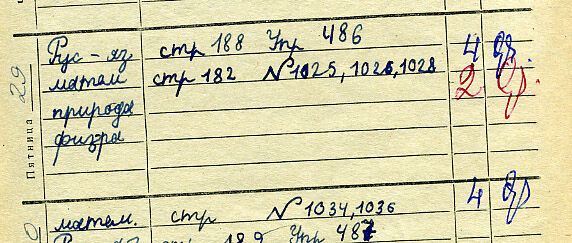 Пятница 29
Рус-яз стр 188 Упр 486 4
матем стр 182 № 1025, 1026, 1028 2
природа
физра
матем. стр № 1034, 1036 4
стр 189 Упр 487